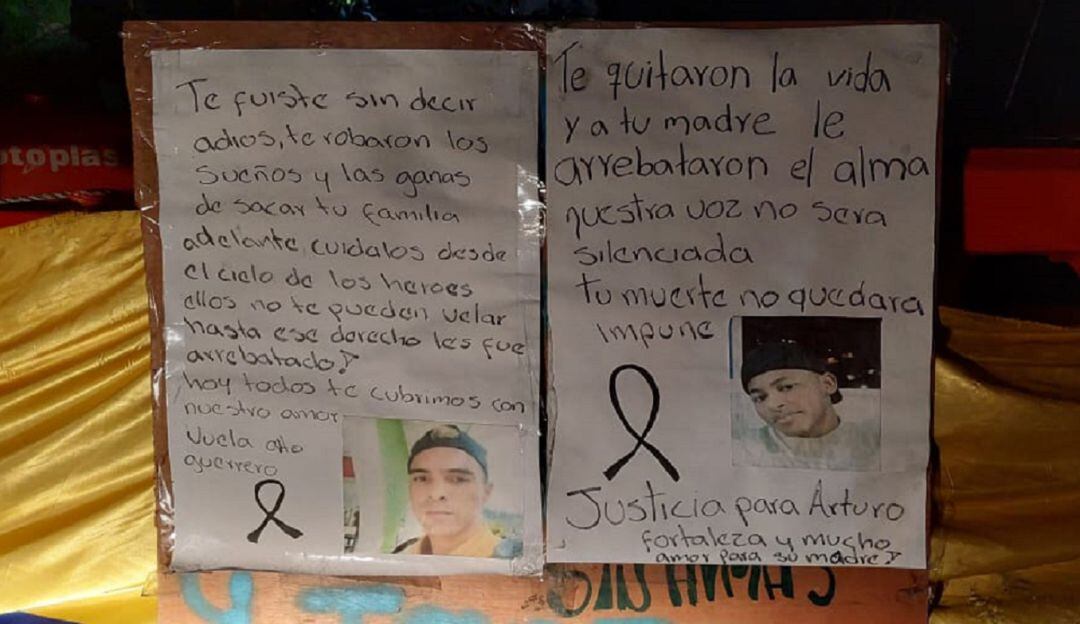 otoplas
Te fuiste sin decir
adios, te robaron los
sueños y las ganas
de sacar tu familia
adelante, cuidalos desde
el cielo de los heroes
ellos no te pueden velar
hasta ese derecho les fue
arrebatado!
hoy todos te cubrimos con
nuestro amor
Vuela alto
guerrero
Te quitaron la vida
y a tu madre le
arrebataron el alma
nuestra voz no sera
silenciada
tu muerte no quedara
impune
Justicia para Arturo
fortaleza y mucho
amor para su madre!